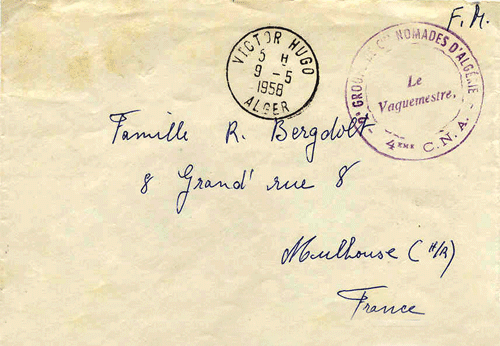 F. M.
VICTOR HUGO
5 H
9 - 5
1958
ALGER
NOMADES D'ALGÉRIE
Le
Vaguemestre.
4ÈME C.N.A.
Famille R. Bergdolt
8 Grand' rue 8
Mulhouse (H/R)
France